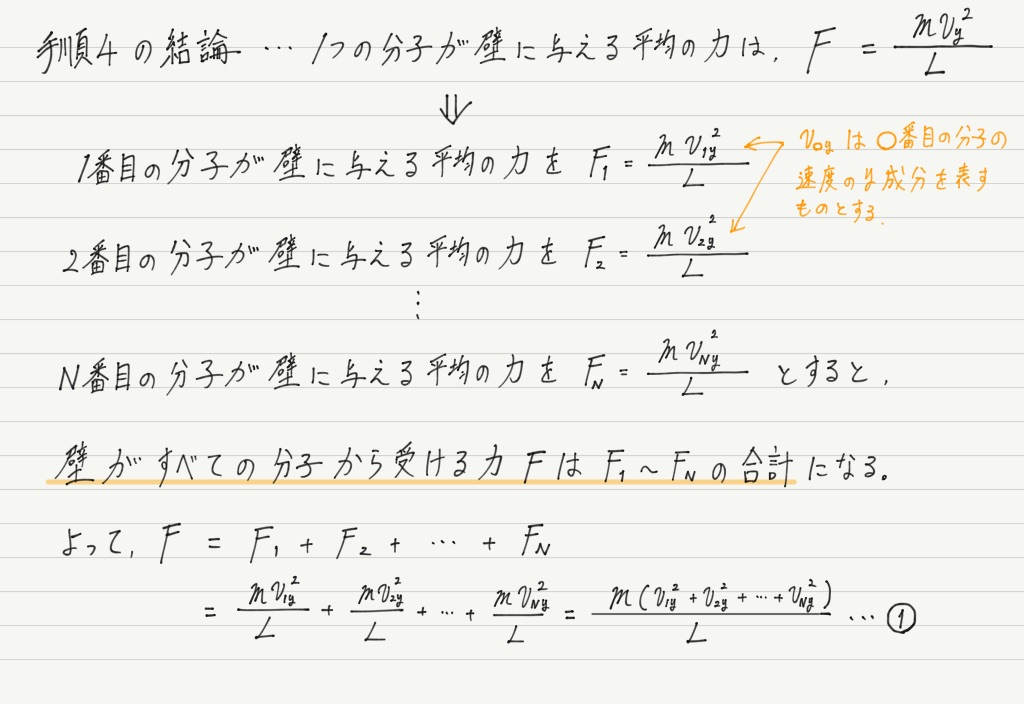 手順4の結論 … 1つの分子が壁に与える平均の力は, F = mv_y^2/L
⇓
1番目の分子が壁に与える平均の力を F_1 = mv_{1y}^2/L
v_{○y} は ○番目の分子の
速度のy成分を表す
ものとする.
2番目の分子が壁に与える平均の力を F_2 = mv_{2y}^2/L
⋮
N番目の分子が壁に与える平均の力を F_N = mv_{Ny}^2/L とすると,
壁がすべての分子から受ける力FはF_1〜F_Nの合計になる。
よって, F = F_1 + F_2 + … + F_N
= mv_{1y}^2/L + mv_{2y}^2/L + … + mv_{Ny}^2/L = m(v_{1y}^2 + v_{2y}^2 + … + v_{Ny}^2)/L … ①